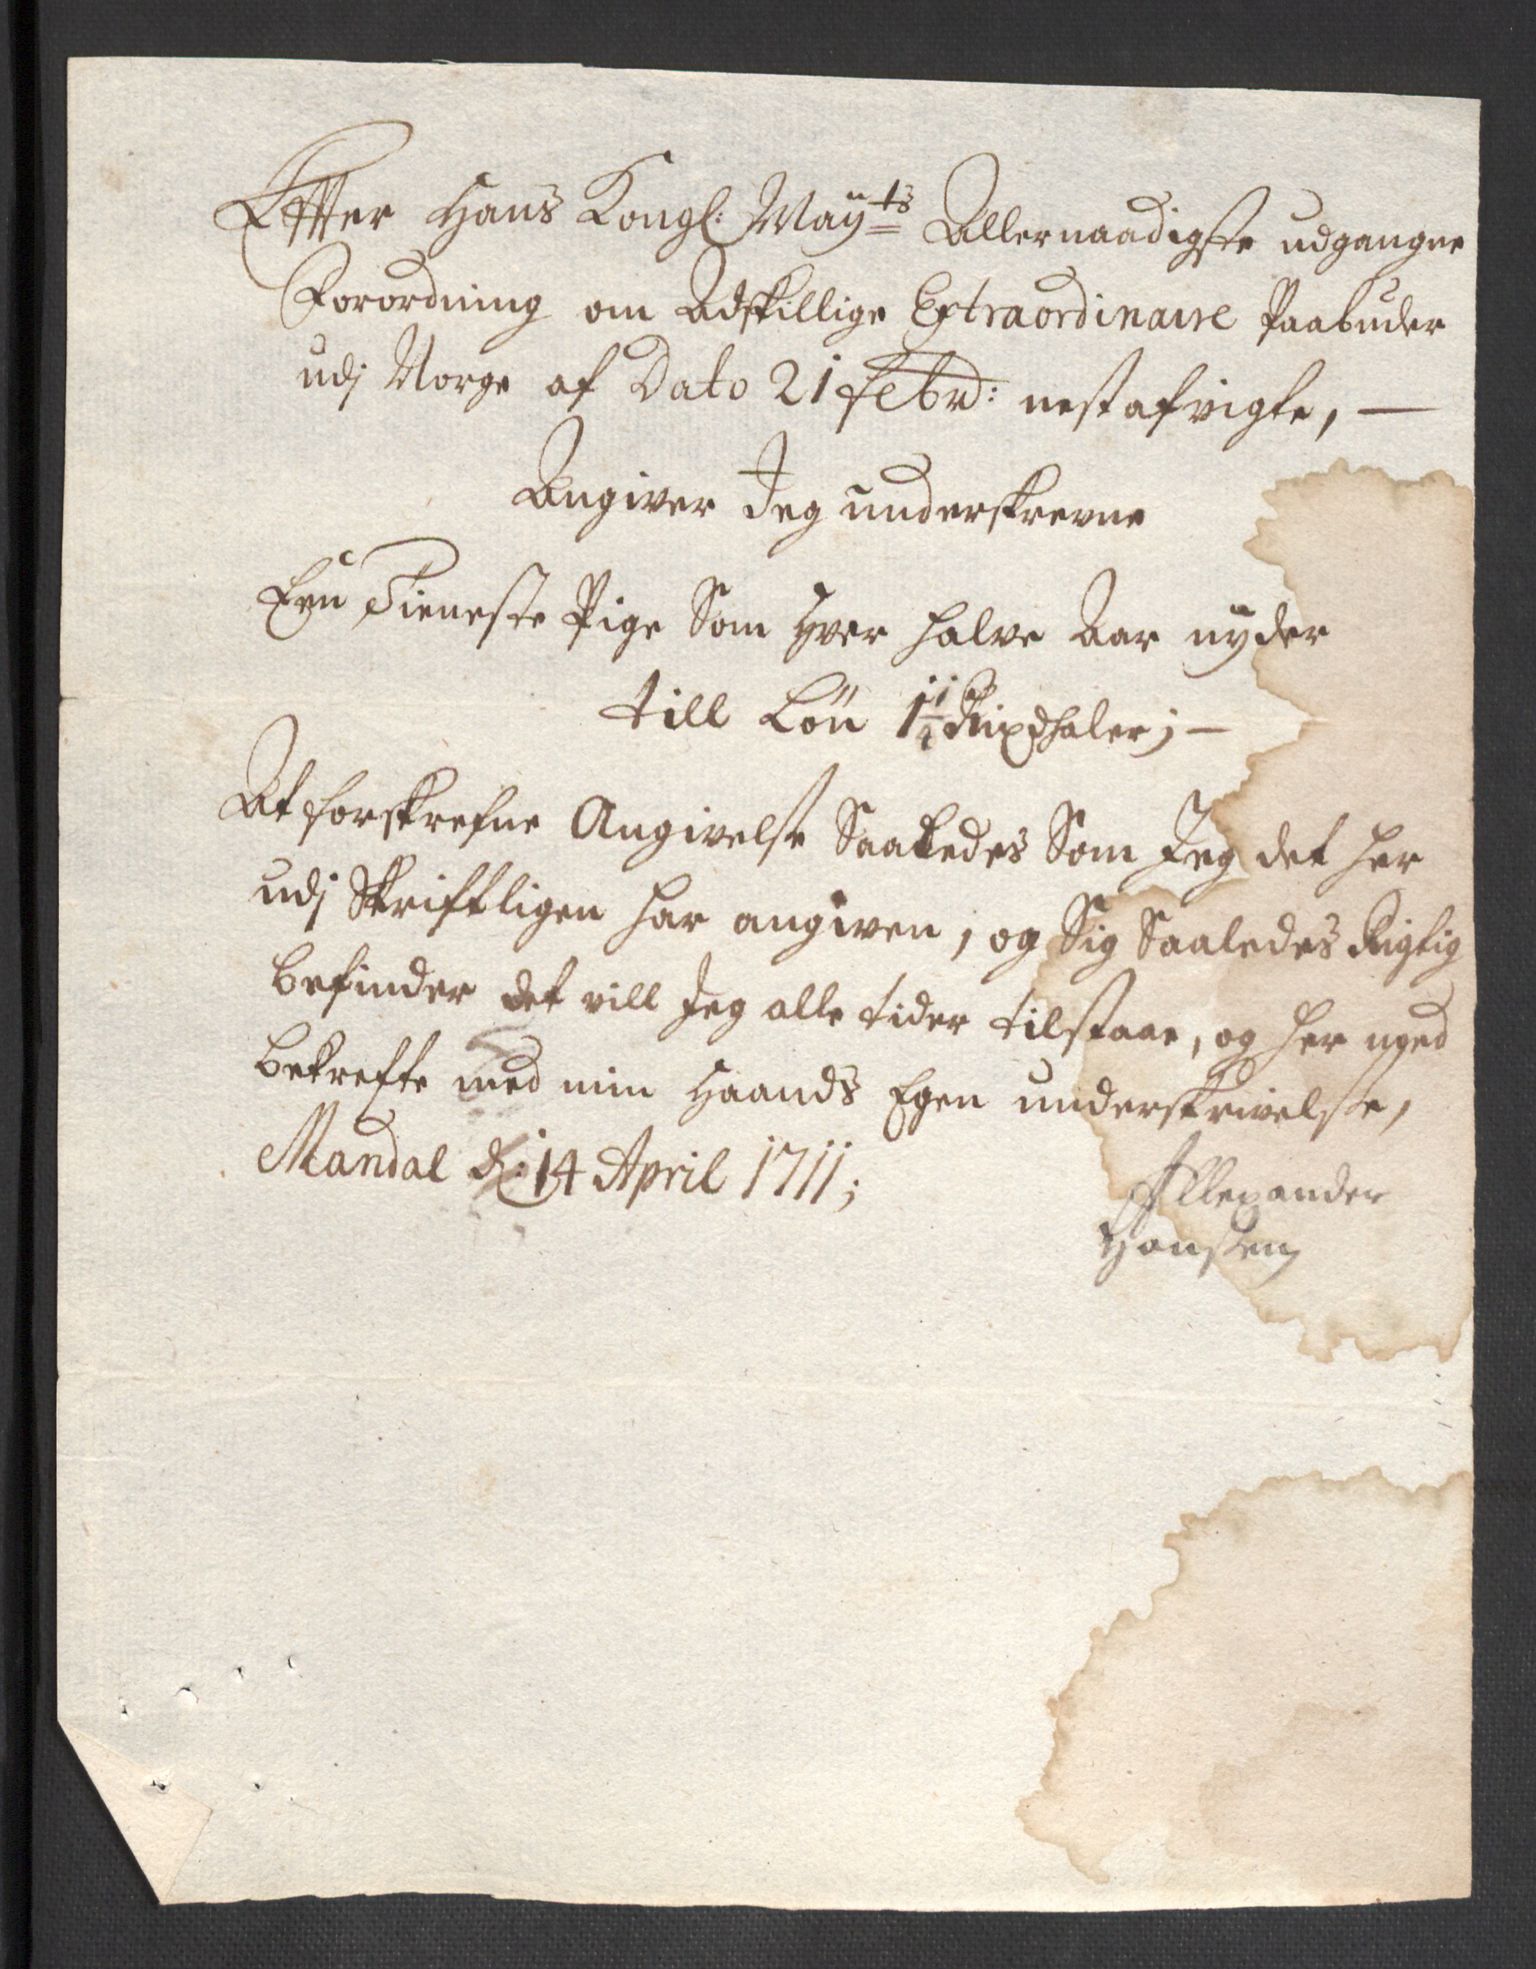 Effter Hans Kongl: Maÿts Allernaadigste udgangne
Forordning om Adskillige Extraordinaire Paabuder
udj Norge af Dato 21 Febr: nestafvigte, —
Angiver Jeg underskrevne
Een Tieneste Pige Som hver halve Aar nÿder
till Løn 1¼ Rixdhaler; —
At forskrefne Angivelse Saaledes Som Jeg det her
udj Skriftligen har angiven, og Sig Saaledes Rigtig
befinder det vill Jeg alle tider tilstaae, og her med
bekrefte med min Haands Egen underskrivelse,
Mandal d: 14 April 1711;
Allexander
Hansen